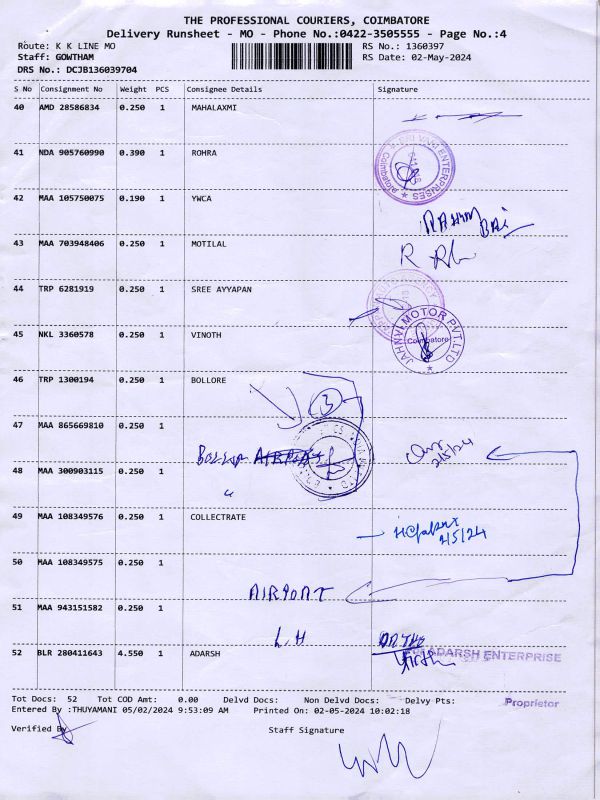 THE PROFESSIONAL COURIERS, COIMBATORE
Delivery Runsheet - MO - Phone No.:0422-3505555 - Page No.:4
Route: K K LINE MO RS No.: 1360397
Staff: GOWTHAM RS Date: 02-May-2024
DRS No.: DCJB136039704
S No Consignment No Weight PCS Consignee Details Signature
40 AMD 28586834 0.250 1 MAHALAXMI
41 NDA 905760990 0.390 1 ROHRA
ENTERPRISES
Coimbatore
42 MAA 105750075 0.190 1 YWCA
43 MAA 703948406 0.250 1 MOTILAL
44 TRP 6281919 0.250 1 SREE AYYAPAN
45 NKL 3360578 0.250 1 VINOTH
JAHNVI MOTOR PVT.LTD
Coimbatore
46 TRP 1300194 0.250 1 BOLLORE
3
47 MAA 865669810 0.250 1
2/5/24
48 MAA 300903115 0.250 1
49 MAA 108349576 0.250 1 COLLECTRATE
2/5/24
50 MAA 108349575 0.250 1
AIRPORT
51 MAA 943151582 0.250 1
L.H
52 BLR 280411643 4.550 1 ADARSH
ADARSH ENTERPRISE
Tot Docs: 52 Tot COD Amt: 0.00 Delvd Docs: Non Delvd Docs: Delvy Pts:
Proprietor
Entered By :THUYAMANI 05/02/2024 9:53:09 AM Printed On: 02-05-2024 10:02:18
Verified By Staff Signature